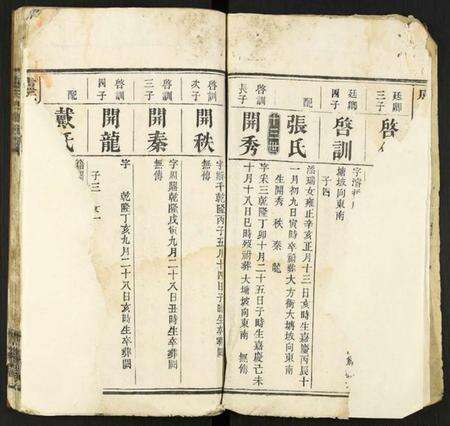 廷卿
三子
啓
廷卿
四子
啓訓
塘坡向東南
子四
配
張氏
瑞女雍正辛亥正月十三日亥時生嘉慶丙辰十
一月初九日寅時卒祔葬大方衝大塘坡向東南
生開秀 秋 秦 龍
十三世
啓訓
長子
開秀
字宋三乾隆丁卯十月二十五日子時生嘉慶己未
十月十八日巳時歿祔葬大塘坡向東南 無傳
啓訓
次子
開秋
乾隆丙子五月十四日子時生卒葬闕
無傳
啓訓
三子
開秦
字 乾隆戊寅九月二十八日丑時生卒葬闕
無傳
啓訓
四子
開龍
字 乾隆丁亥九月二十八日亥時生卒葬闕
子三
配
戴氏